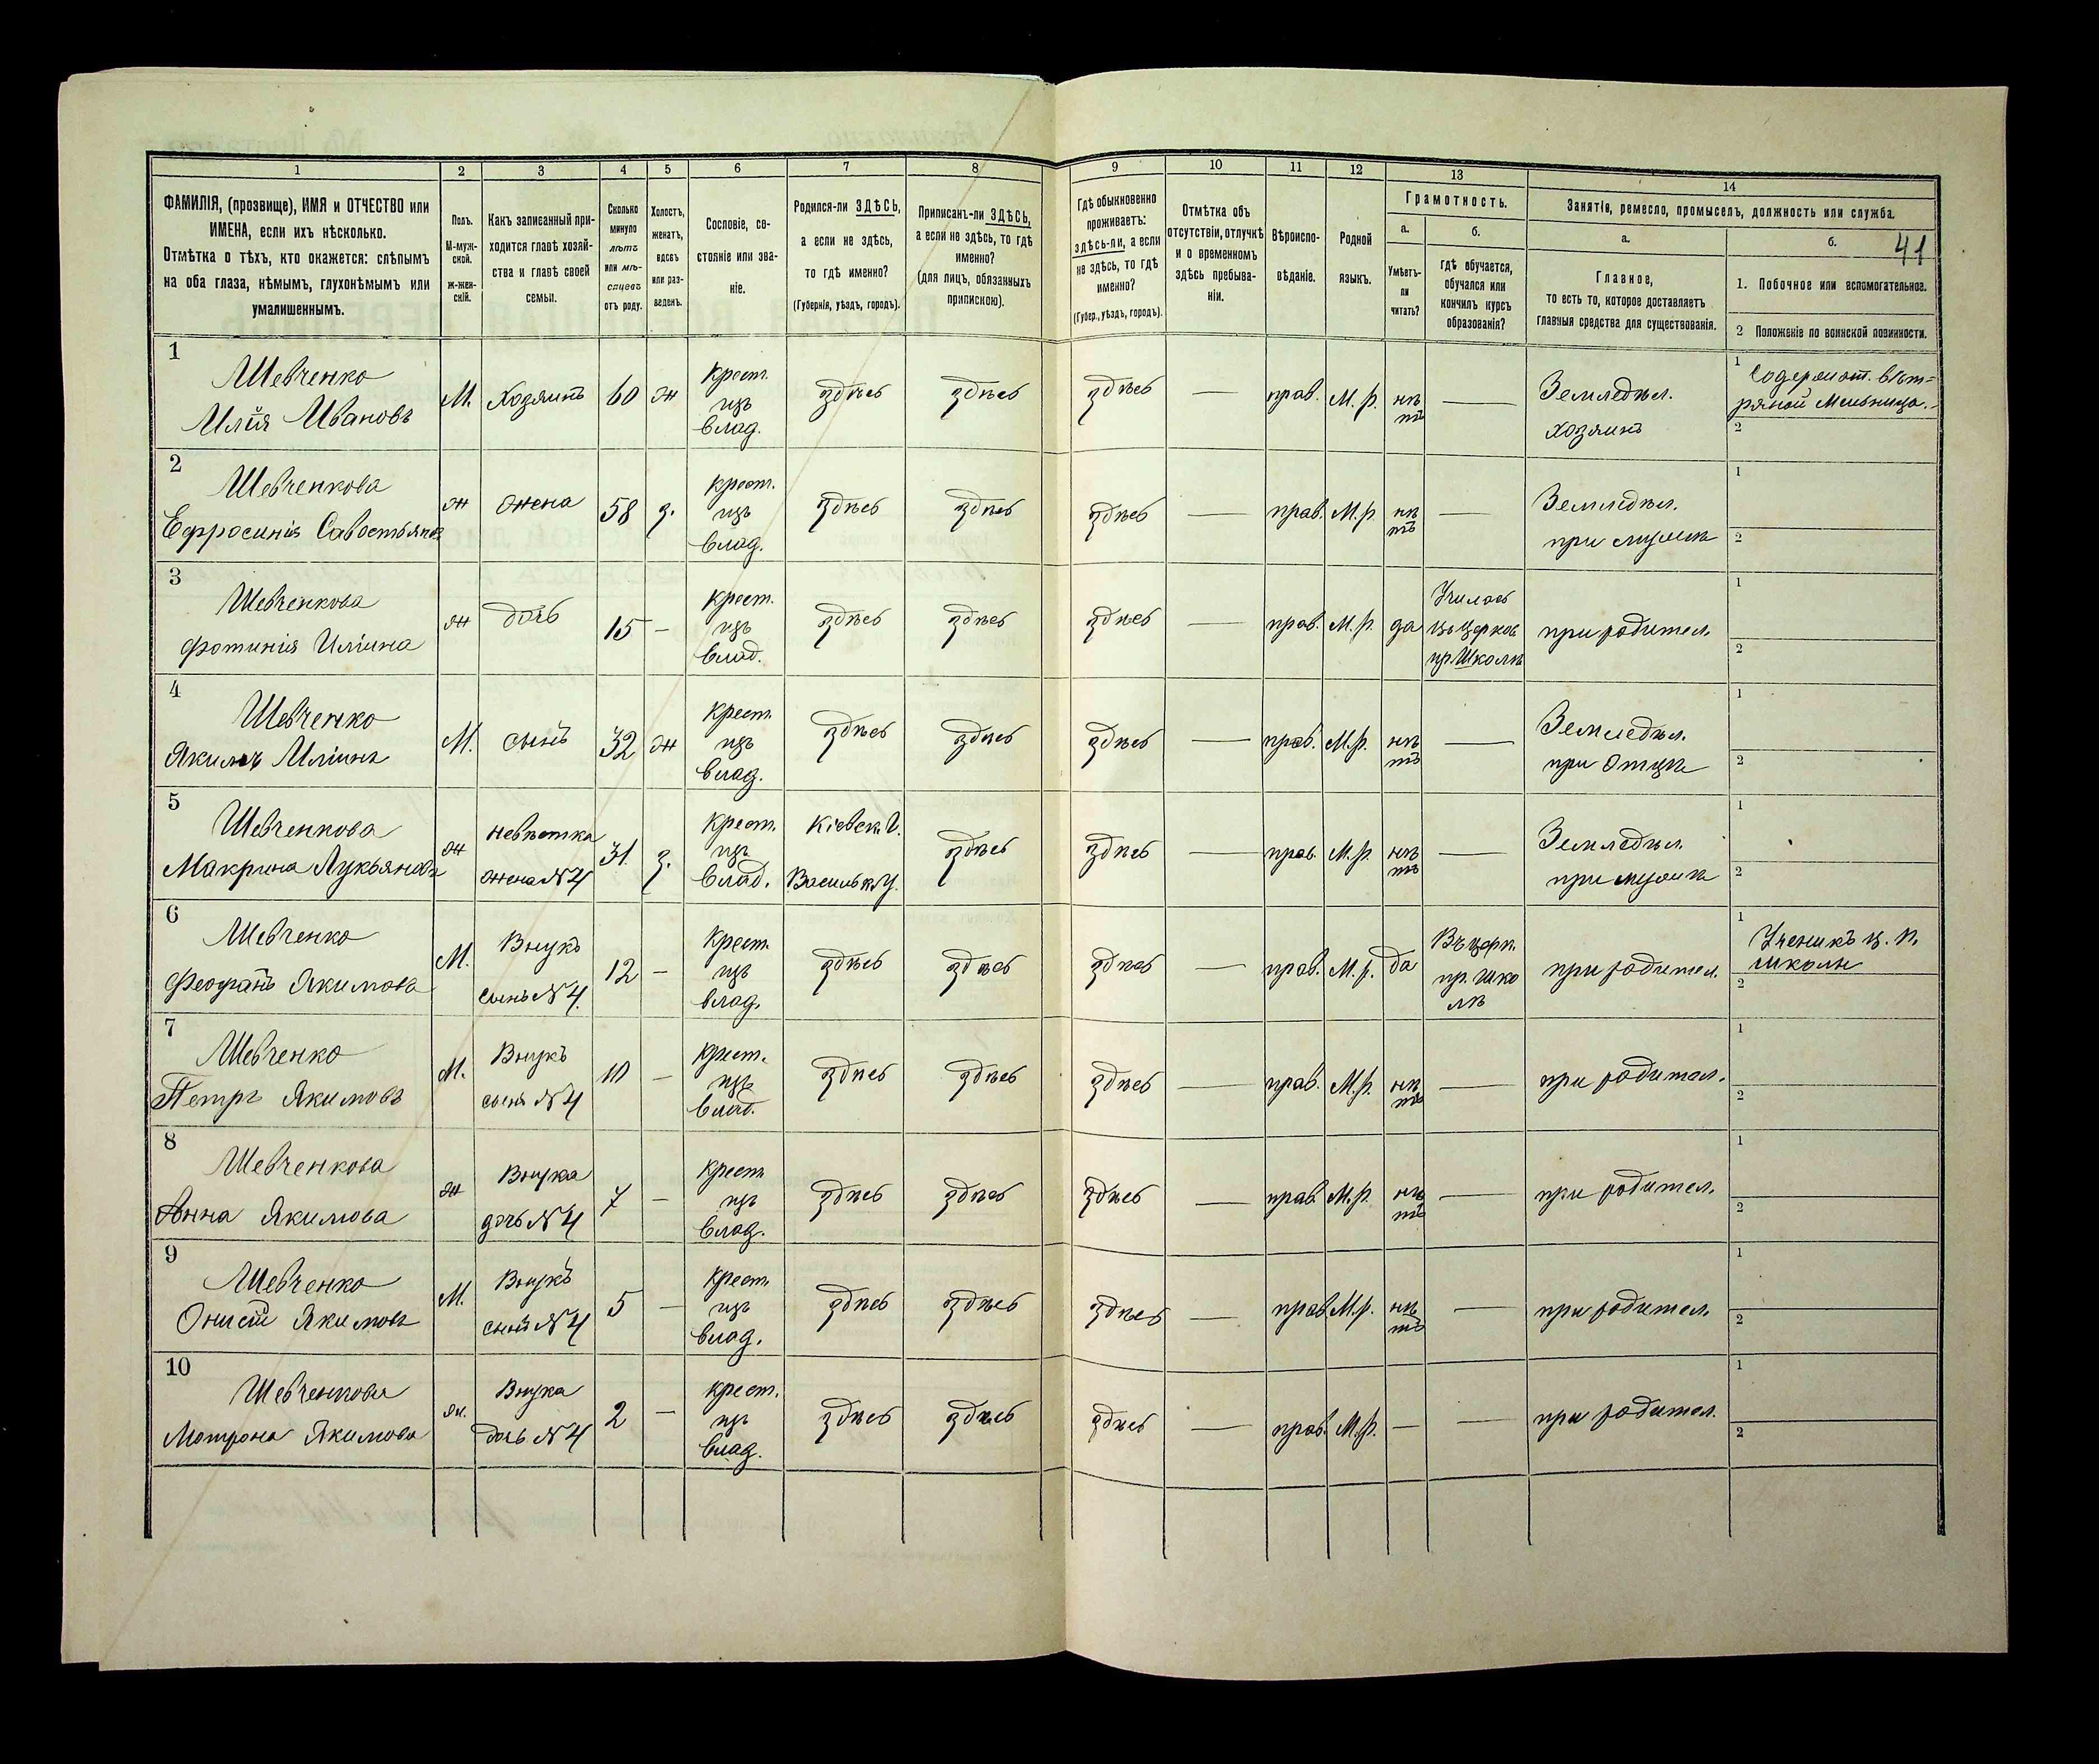 1 2 3 4 5 6 7 8 9 10 11 12 13 14
ФАМИЛІЯ, (прозвище), ИМЯ и ОТЧЕСТВО или
ИМЕНА, если ихъ нѣсколько.
Отмѣтка о тѣхъ, кто окажется: слѣпымъ
на оба глаза, нѣмымъ, глухонѣмымъ или
умалишеннымъ.
Полъ.
М-муж-
ской.
ж-жен-
скій.
Какъ записанный при-
ходится главѣ хозяй-
ства и главѣ своей
семьи.
Сколько
минуло
лѣтъ
или мѣ-
сяцевъ
отъ роду.
Холостъ,
женатъ,
вдовъ
или раз-
веденъ.
Сословіе, со-
стояніе или зва-
ніе.
Родился-ли ЗДѢСЬ,
а если не здѣсь,
то гдѣ именно?
(Губернія, уѣздъ, городъ).
Приписанъ-ли ЗДѢСЬ,
а если не здѣсь, то гдѣ
именно?
(для лицъ, обязанныхъ
припискою).
Гдѣ обыкновенно
проживаетъ:
здѣсь-ли, а если
не здѣсь, то гдѣ
именно?
(Губер., уѣздъ, городъ).
Отмѣтка объ
отсутствіи, отлучкѣ
и о временномъ
здѣсь пребыва-
ніи.
Вѣроиспо-
вѣданіе.
Родной
языкъ.
Грамотность.
а.
Умѣетъ-
ли
читать?
б.
гдѣ обучается,
обучался или
кончилъ курсъ
образованія?
Занятіе, ремесло, промыселъ, должность или служба.
а.
Главное,
то есть то, которое доставляетъ
главныя средства для существованія.
б.
41
1. Побочное или вспомогательное.
2 Положеніе по воинской повинности.
1
Шевченко
Илія Ивановъ
М.
Хозяинъ
60
ж
Крест.
изъ
влад.
здѣсь
здѣсь
здѣсь
—
прав.
М. р.
нѣ
тъ
—
Земледѣл.
хозяинъ
1
Содержат. вѣт=
ряной Мельницы.
2
2
Шевченкова
Ефросинія Савостьянова
ж
жена
58
з.
Крест.
изъ
влад.
здѣсь
здѣсь
здѣсь
—
прав.
М. р.
нѣ
тъ
—
Земледѣл.
при мужѣ
1
2
3
Шевченкова
Фотинія Иліина
ж
дочь
15
—
Крест.
изъ
влад.
здѣсь
здѣсь
здѣсь
—
прав.
М. р.
да
Училась
въ Церков
пр. Школѣ
при родител.
1
2
4
Шевченко
Якимъ Иліинъ
М.
сынъ
32
ж
Крест.
изъ
влад.
здѣсь
здѣсь
здѣсь
—
прав.
М. р.
нѣ
тъ
—
Земледѣл.
при Отцѣ
1
2
5
Шевченкова
Макрина Лукьянова
ж
невѣстка
жена №4
31
з.
Крест.
изъ
влад.
Кіевск. Г.
Васильк. У.
здѣсь
здѣсь
—
прав.
М. р.
нѣ
тъ
—
Земледѣл.
при мужѣ
1
2
6
Шевченко
Феофанъ Якимовъ
М.
Внукъ
сынъ №4
12
—
Крест.
изъ
влад.
здѣсь
здѣсь
здѣсь
—
прав.
М. р.
да
Въ церк.
пр. шко
лѣ
при родител.
1
Ученикъ ц. п.
школы
2
7
Шевченко
Петръ Якимовъ
М.
Внукъ
сынъ №4
10
—
Крест.
изъ
влад.
здѣсь
здѣсь
здѣсь
—
прав.
М. р.
нѣ
тъ
—
при родител.
1
2
8
Шевченкова
Анна Якимова
ж
Внука
дочь №4
7
—
Крест
изъ
влад.
здѣсь
здѣсь
здѣсь
—
прав.
М. р.
нѣ
тъ
—
при родител.
1
2
9
Шевченко
Онисій Якимовъ
М.
Внукъ
сынъ №4
5
—
Крест.
изъ
влад.
здѣсь
здѣсь
здѣсь
—
прав.
М. р.
нѣ
тъ
—
при родител.
1
2
10
Шевченкова
Мотрона Якимова
ж.
Внука
дочь №4
2
—
Крест.
изъ
влад.
здѣсь
здѣсь
здѣсь
—
прав.
М. р.
—
—
при родител.
1
2